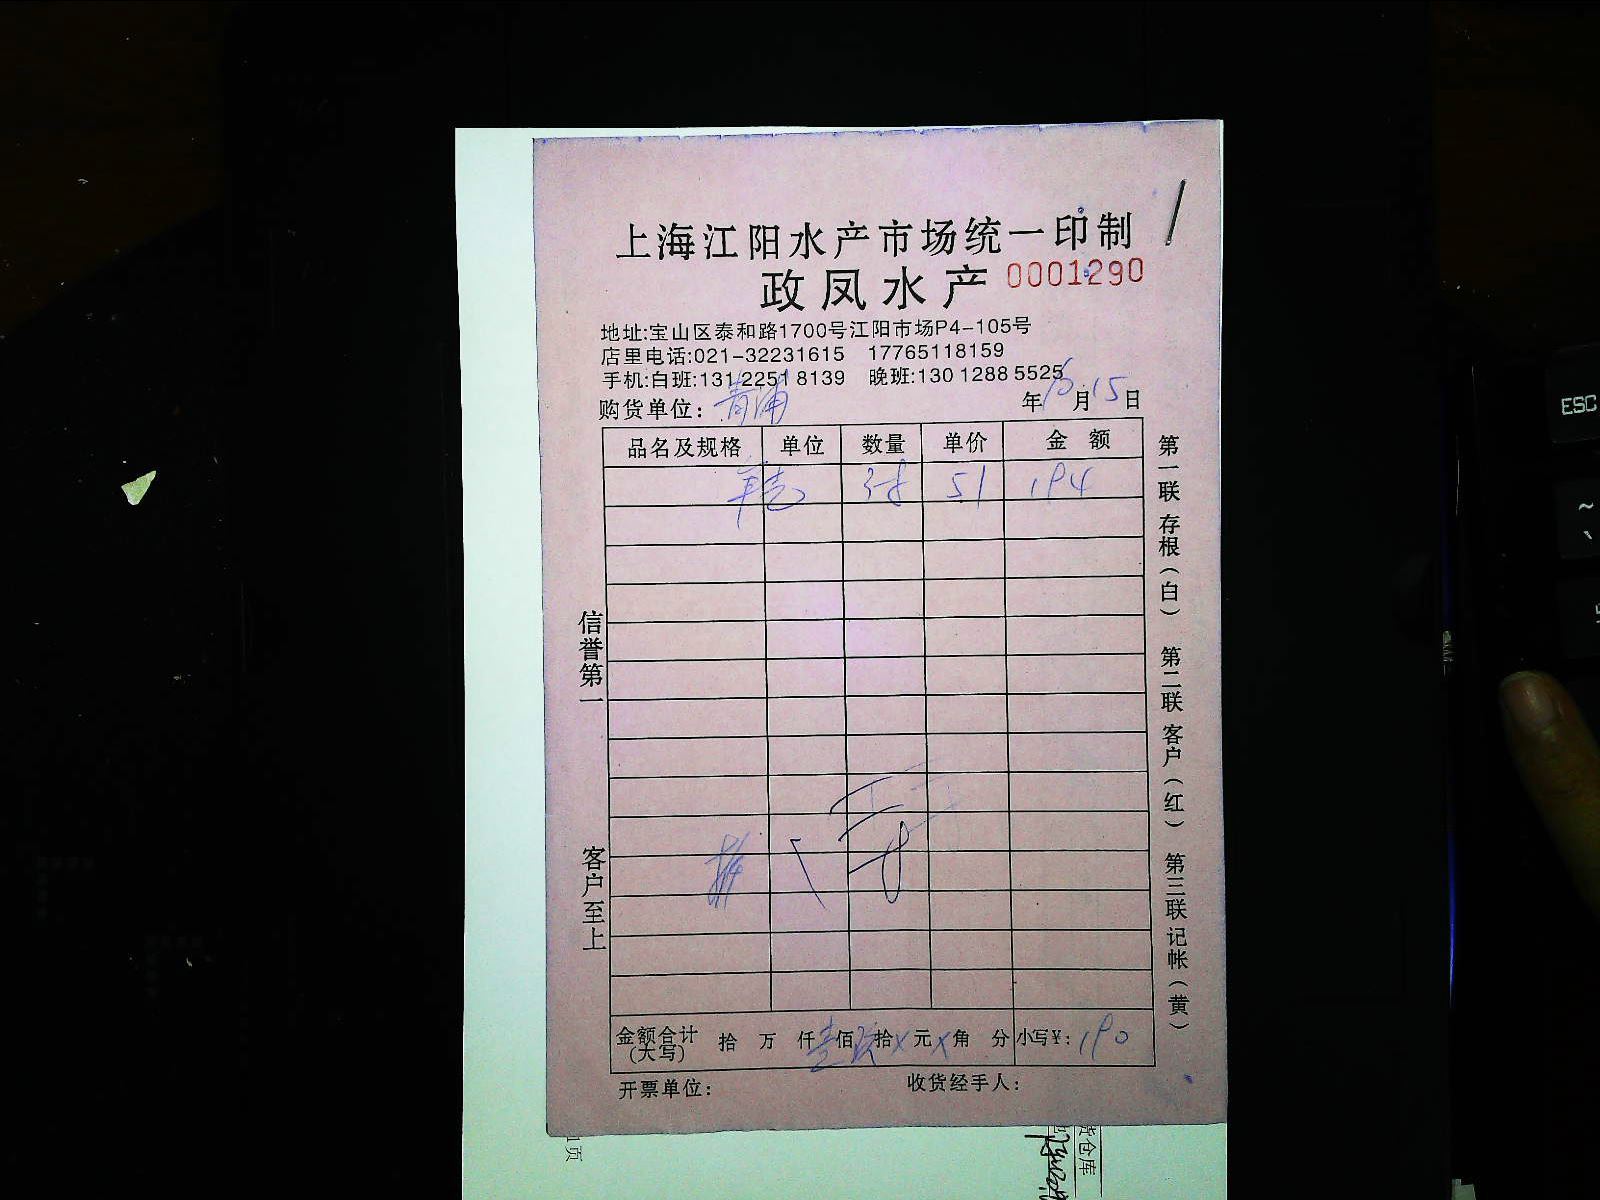 上海江阳水产市场统一印制
政凤水产 0001290
地址:宝山区泰和路1700号江阳市场P4-105号
店里电话:021-32231615 17765118159
手机:白班:131 2251 8139 晚班:130 1288 5525
购货单位: 青浦 年10月15日
品名及规格 单位 数量 单价 金额
38 51 194
信誉第一
客户至上
第一联 存根(白) 第二联 客户(红) 第三联 记帐(黄)
金额合计(大写) 拾 万 仟壹佰玖拾×元×角 分 小写¥: 190
开票单位: 收货经手人:
货仓库
ESC